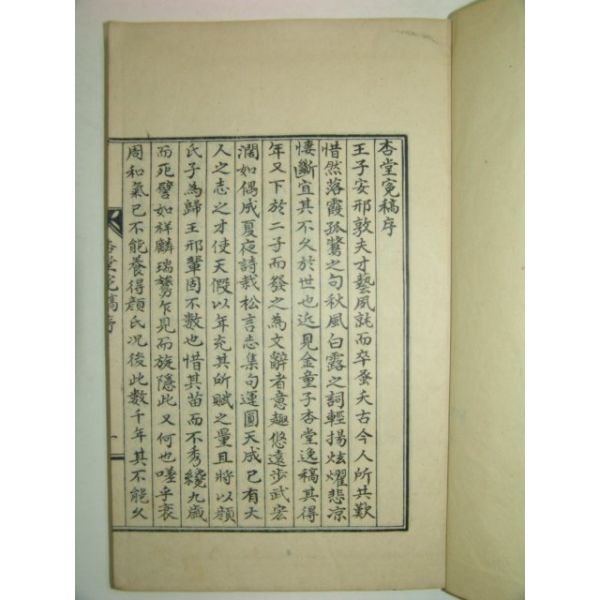 杏堂寃稿序
王子安邢敦夫才藝夙就而卒蚤夫古今人所共歎
惜然落霞孤鶩之句秋風白露之詞輕揚炫燿悲凉
悽斷宜其不久於世也近見金童子杏堂逸稿其得
年又下於二子而發之為文辭者意趣悠遠步武宏
濶如偶成夏夜詩栽松言志集句運圓天成已有大
人之志之才使天假以年充其所賦之量且將以顔
氏子為歸王邢輩固不數也惜其苗而不秀纔九歲
而死譬如祥麟瑞鸑乍見而旋隱此又何也嗟乎衰
周和氣已不能養得顔氏况後此數千年其不能久
杏堂寃稿序
一